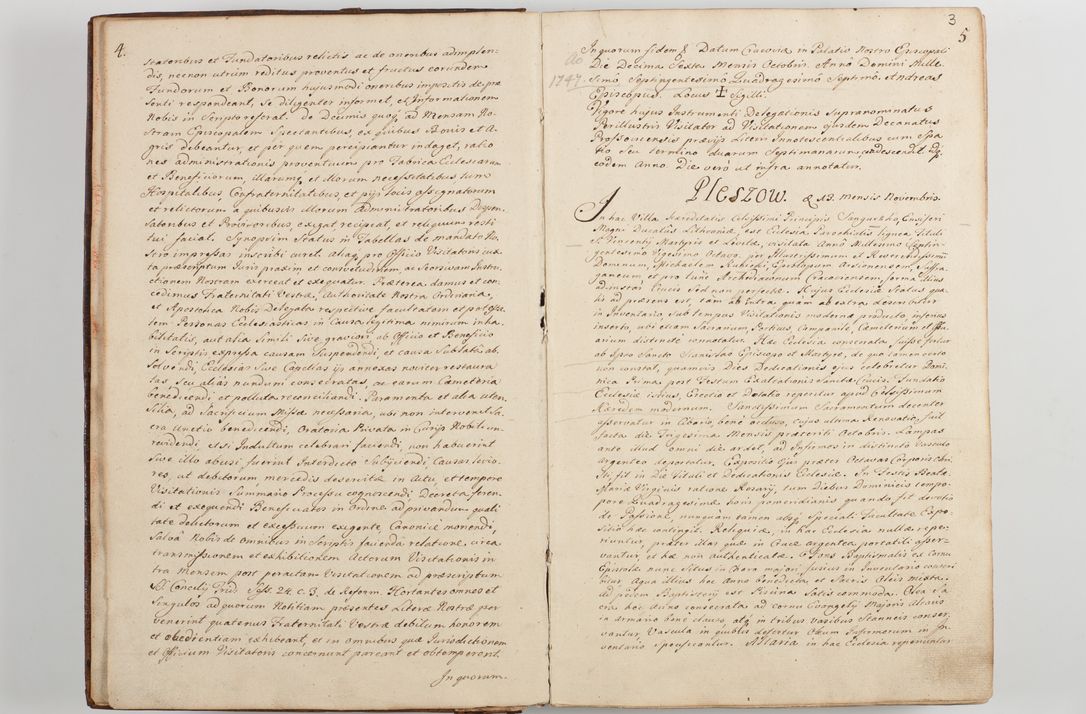 4.
statoribus et Fundatoribus relictis ac de oneribus adimplen-
dis, necnon utrum reditus proventus et fructus eorundem
Fundorum et Bonorum hujusmodi oneribus impositis de prae
senti respondeant, se diligenter informet, et Informationem
Nobis in Scripto referat. De Decimis quoq, ad Mensam No-
stram Episcopalem Spectantibus, ex quibus Bonis et A-
gris debeantur, et per quem percipiantur indaget, ratio
nes administrationis proventuum pro Fabrica Ecclesiarum
et Beneficiorum, illarumq, et illorum necessitatibus tum
Hospitalibus, Confraternitatibus, et pijs locis assignatorum
et relictorum a quibusvis illorum Administratoribus Dispen-
satoribus et Provisoribus, exigat, recipiat, et reliquum resti
tui faciat. Synopsim Status in Tabellas de mandato No-
stro impressas inscribi curet. Aliaq, pro Officio Visitatoris iux-
ta praescriptum Iuris praxim et consvetudinem, ac seorsivam Instru-
ctionem Nostram exerceat et exequatur. Praeterea damus et con-
cedimus Fraternitati Vestrae, Authoritate Nostra Ordinaria,
et Apostolica Nobis Delegata respective facultatem et potesta
tem Personas Ecclesiasticas in Causa legitima nimirum inha
bilitatis, aut alia simili sive graviori ab Officio et Beneficio
in Scriptis expressa causam Suspendendi, et causa sublata ab-
solvendi, Ecclesias sive Capellas ijs annexas noviter restaura
tas, seu alias nundum consecratas, ac earum Caemeteria
benedicendi et polluta reconciliandi. Paramenta et alia uten-
silia, ad Sacrificium Missae necessaria, ubi non intervenit Sa-
cra Unctio benedicendi, Oratoria Privata in Curijs Nobilium
revidendi, et si Indultum celebrari faciendi, non habuerint
sive illo abusi fuerint Interdicto Subijciendi, Causas levio-
res, ut debitorum, mercedis deservitae in Actu, et tempore
Visitationis Summario Processu cognoscendi Decreta feren-
di et exequendi Beneficiatos in Ordine ad privandum quali
tate delictorum et excessuum exigente, Canonice monendi,
Salva Nobis de omnibus in Scriptis facienda relatione, circa
transmissionem et exhibitionem Actorum Visitationis in
tra mensem post peractam Visitationem ad praescriptum
S. Concilij Trid. Sess. 24. c. 3. de Reform. Hortantes omnes et
singulos ad quorum Notitiam praesentes Literae Nostrae per
venerint quatenus Fraternitati Vestrae debitum honorem
et obedientiam exhibeant, et in omnibus quae Jurisdictionem
et Officium Visitatoris concernunt pareant et obtemperent.
In quorum.
3
5
Ao
1747.
In quorum fidem & Datum Cracoviae in Palatio Nostro Episcopali
Die Decima Sexta Mensis Octobris. Anno Domini Mille-
simo Septingentesimo Quadragesimo Septimo. Andreas
Episcopus. Locus + Sigilli.
Vigore hujus Instrumenti Delegationis Supranominatus
Perillustris Visitator ad Visitationem ejusdem Decanatus
Prossoviensis praevijs Literis Innotescentialibus cum Spa-
tio seu termino duarum Septimanarum, condescendit
eodem Anno. Die vero ut infra annotatur.
Pleszow. & 13. Mensis Novembris.
In hac Villa Haereditatis Celsissimi Principis Sangusko, Ensiferi
Magni Ducatus Lithvaniae, est Ecclesia Parochialis lignea Tituli
S. Vincentij Martyris et Levitae, visitata Anno Millesimo Septin-
gentesimo Vigesimo Octavo, per Illustrissimum et Reverendissimum
Dominum, Michaelem Kunicki, Episcopum Arsionensem, Suffra-
ganeum et pro tunc Archidiaconum Cracoviensem,
ad instar Crucis sed non perfectae. Hujus Ecclesiae Status qua-
lis ad praesens est, tam ab intra quam ab extra describitur
in Inventario sub tempus Visitationis modernae producto, inferius
inserto, ubi etiam Sacrarium, Porticus, Campanile, Caemeterium et
arium distincte connotatur. Haec Ecclesia consecrata fuisse fertur
ab ipso Sancto Stanislao Episcopo et Martyre, de quo tamen certo
non constat, quamvis Dies Dedicationis ejus celebretur Domi-
nica Prima post Festum Exaltationis Sanctae Crucis. Fundatio
Ecclesiae istius, Erectio et Dotatio reperitur apud Celsissimum
Haeredem modernum. Sanctissimum Sacramentum decenter
asservatur in Ciborio, bene occluso, cujus ultima Renovatio, fuit
facta die Trigesima Mensis praeteriti Octobris. Lampas
ante illud omni die ardet, ad Infirmos in distincto Vasculo
argenteo deportatur, Expositio Ejus praeter Octavas Corporis Chri
sti, fit in Die Tituli et Dedicationis Ecclesiae. In Festis Beatae
Mariae Virginis ratione Rosarij, tum Diebus Dominicis tempo-
pore Quadragesimae horis pomeridianis quando fit devotio
de Passione, nunquam tamen absq, speciali Facultate Expo-
sitio haec contingit. Reliquiae, in hac Ecclesia nullae repe-
riuntur, praeter illas quae in Cruce argentea portatili asser-
vantur, et hae non authenticatae. Fons Baptismalis ex Cornu
Epistolae nunc situs in Choro majori fusius in Inventario conscri-
bitur, Aqua illius hoc Anno benedicta, et Sacris Oleis mixta.
ad pedem Baptisterij est Piscina satis commoda. Olea Sa
cra hoc Anno consecrata ad cornu Evangelij Majoris Altaris
in Armario bene clauso, atq in tribus vasibus stanneis conser
vantur, Vascula in quibus defertur Oleum Infirmorum in In
ventario specificantur. Altaria in hac Ecclesia reperiuntur